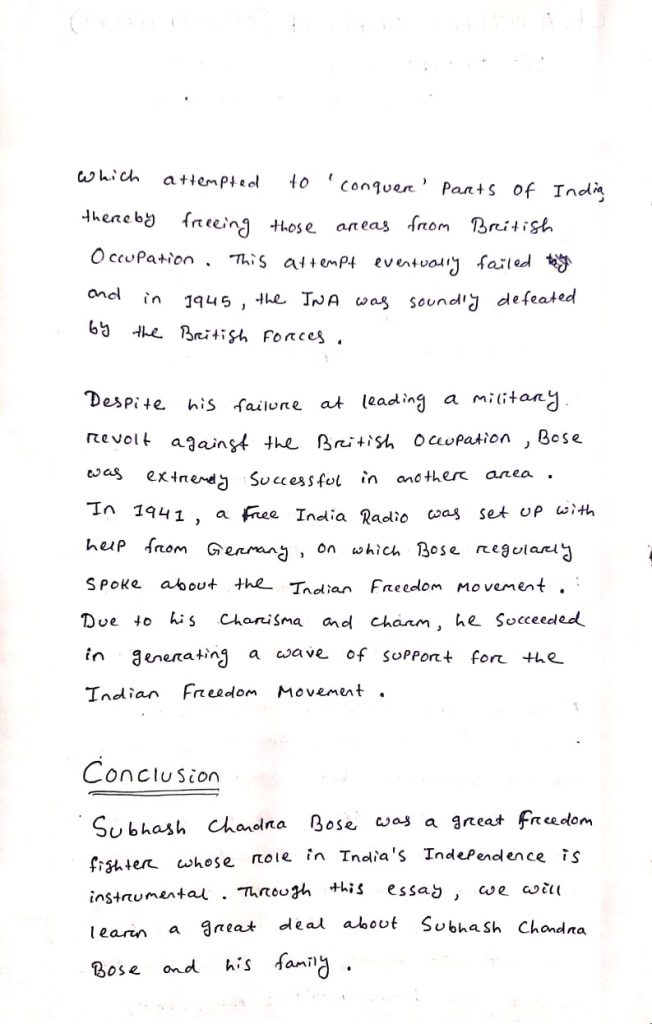 which attempted to 'conquer' parts of India
thereby freeing those areas from British
Occupation. This attempt eventually failed
and in 1945, the INA was soundly defeated
by the British Forces.
Despite his failure at leading a military
revolt against the British Occupation, Bose
was extremely Successful in another area.
In 1941, a Free India Radio was set up with
help from Germany, on which Bose regularly
spoke about the Indian Freedom Movement.
Due to his Charisma and charm, he Succeeded
in generating a wave of support for the
Indian Freedom Movement.
Conclusion
Subhash Chandra Bose was a great freedom
fighter whose role in India's Independence is
instrumental. Through this essay, we will
learn a great deal about Subhash Chandra
Bose and his family.